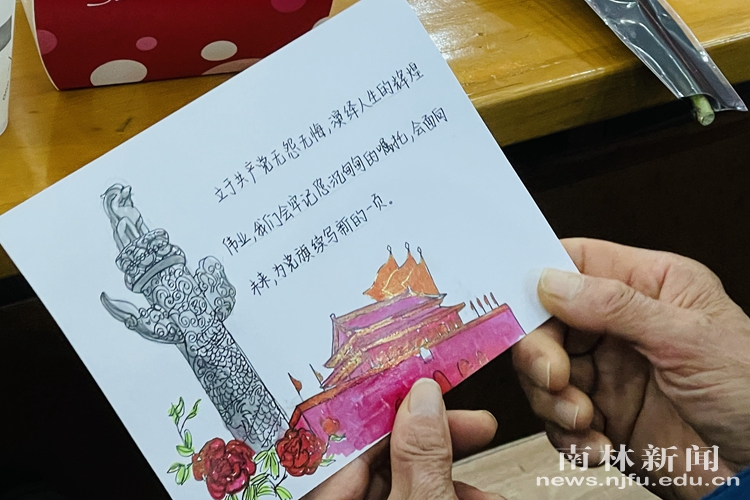 立于共产党无怨无悔,演绎人生的辉煌
伟业,我们会牢记您沉甸甸的嘱托,会面向
未来,为党旗续写新的一页。
南林新闻
news.njfu.edu.cn